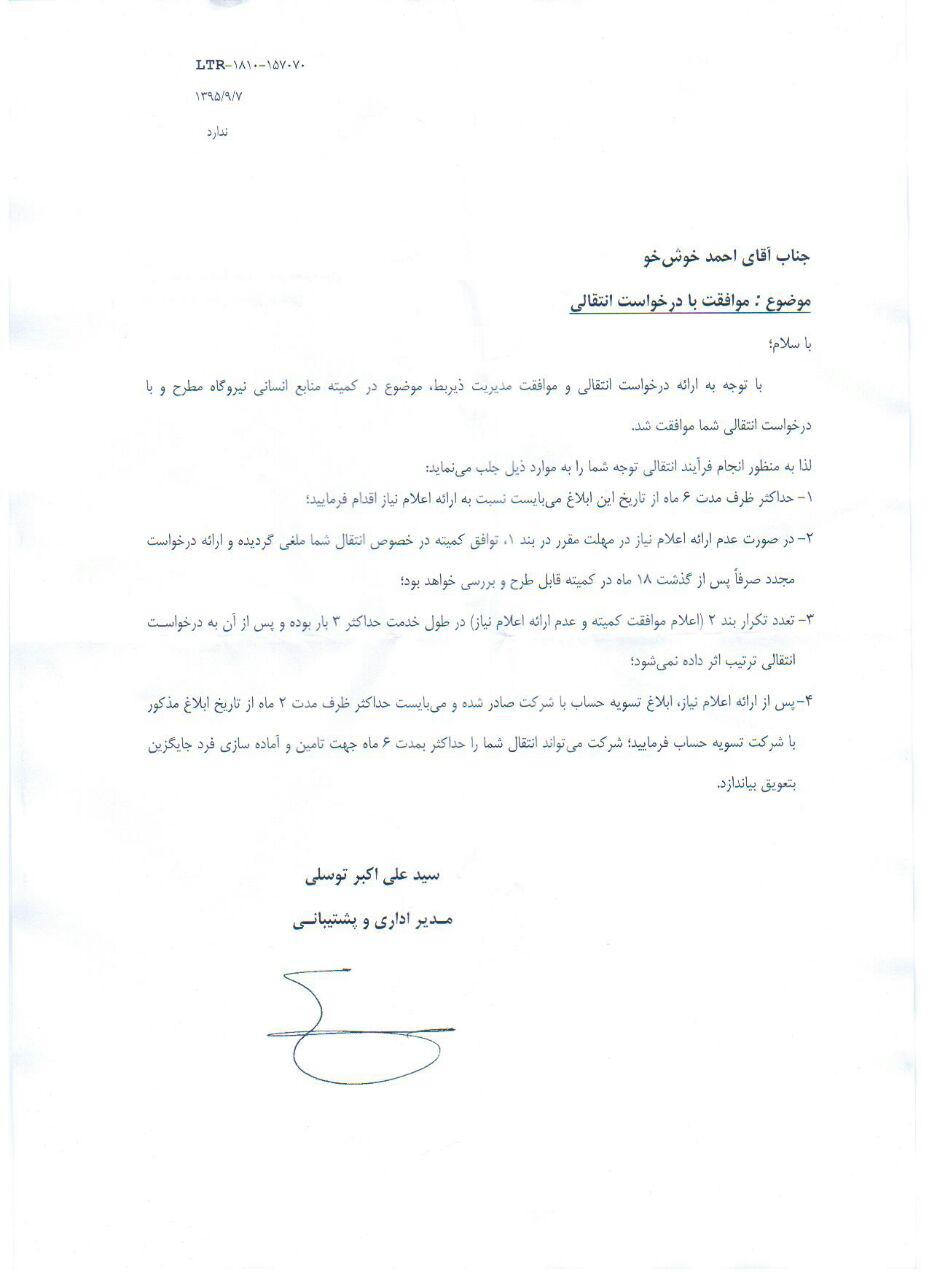 LTR-۱۸۱۰-۱۵۷۰۷۰
۱۳۹۵/۹/۷
ندارد
جناب آقای احمد خوش‌خو
موضوع : موافقت با درخواست انتقالی
با سلام؛
با توجه به ارائه درخواست انتقالی و موافقت مدیریت ذیربط، موضوع در کمیته منابع انسانی نیروگاه مطرح و با
درخواست انتقالی شما موافقت شد.
لذا به منظور انجام فرآیند انتقالی توجه شما را به موارد ذیل جلب می‌نماید:
۱- حداکثر ظرف مدت ۶ ماه از تاریخ این ابلاغ می‌بایست نسبت به ارائه اعلام نیاز اقدام فرمایید؛
۲- در صورت عدم ارائه اعلام نیاز در مهلت مقرر در بند ۱، توافق کمیته در خصوص انتقال شما ملغی گردیده و ارائه درخواست
مجدد صرفاً پس از گذشت ۱۸ ماه در کمیته قابل طرح و بررسی خواهد بود؛
۳- تعدد تکرار بند ۲ (اعلام موافقت کمیته و عدم ارائه اعلام نیاز) در طول خدمت حداکثر ۳ بار بوده و پس از آن به درخواست
انتقالی ترتیب اثر داده نمی‌شود؛
۴- پس از ارائه اعلام نیاز، ابلاغ تسویه حساب با شرکت صادر شده و می‌بایست حداکثر ظرف مدت ۲ ماه از تاریخ ابلاغ مذکور
با شرکت تسویه حساب فرمایید؛ شرکت می‌تواند انتقال شما را حداکثر بمدت ۶ ماه جهت تامین و آماده سازی فرد جایگزین
بتعویق بیاندازد.
سید علی اکبر توسلی
مدیر اداری و پشتیبانی